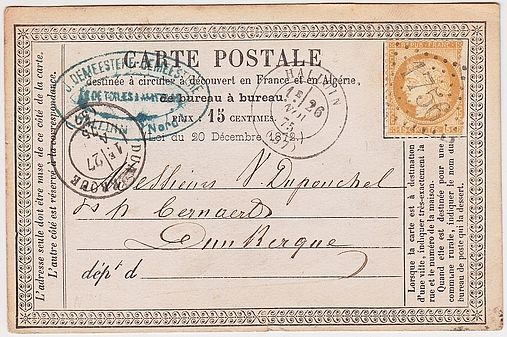 CARTE POSTALE
destinée à circuler à découvert en France et en Algérie,
de bureau à bureau.
PRIX : 15 CENTIMES.
Loi du 20 Décembre 1872.
J. DEMEESTERE-DEMEESTERE
Nord
DUNKERQUE
1E
27
1E
26
75
1756
Messieurs V. Dupouchel
Dunkerque
dépt d
L'adresse seule doit être mise de ce côté de la carte.
L'autre côté est réservé à la correspondance.
Lorsque la carte est à destination
d'une ville, indiquer très-exactement la
rue et le numéro de la maison.
Quand elle est destinée pour une
commune rurale, indiquer le nom du
bureau de poste qui la dessert.